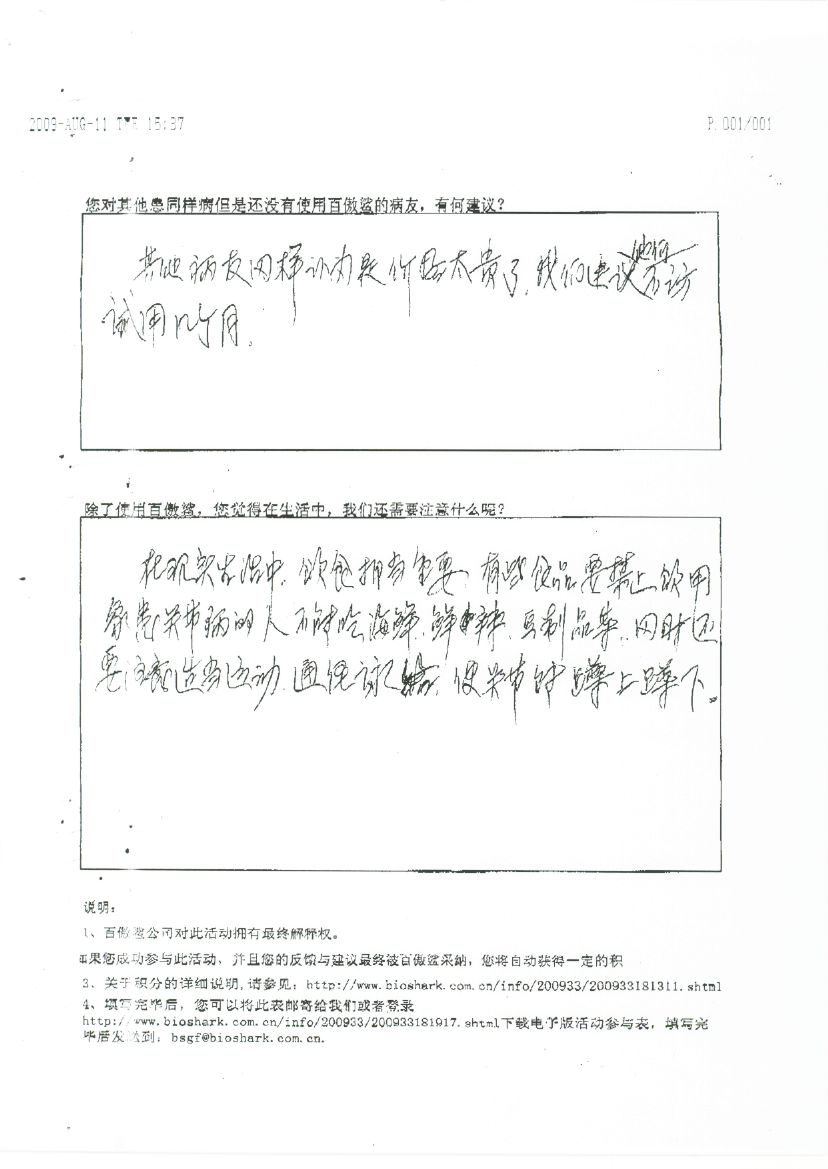 2009-AUG-11 TUE 15:37 P. 001/001
您对其他患同样病但是还没有使用百傲鲨的病友，有何建议？
其他病友同样认为是价格太贵了，我们建议他们不访
试用几个月。
除了使用百傲鲨，您觉得在生活中，我们还需要注意什么呢？
在现实生活中，饮食相当重要，有些食品要禁止饮用
象患关节病的人不能吃海鲜、鲜辣、豆制品等，同时还
要注意适当运动，使关节能蹲上蹲下。
说明：
1、百傲鲨公司对此活动拥有最终解释权。
如果您成功参与此活动，并且您的反馈与建议最终被百傲鲨采纳，您将自动获得一定的积
3、关于积分的详细说明,请参见：http://www.bioshark.com.cn/info/200933/200933181311.shtml
4、填写完毕后，您可以将此表邮寄给我们或者登录
http://www.bioshark.com.cn/info/200933/200933181917.shtml下载电子版活动参与表，填写完
毕后发送到：bsgf@bioshark.com.cn.